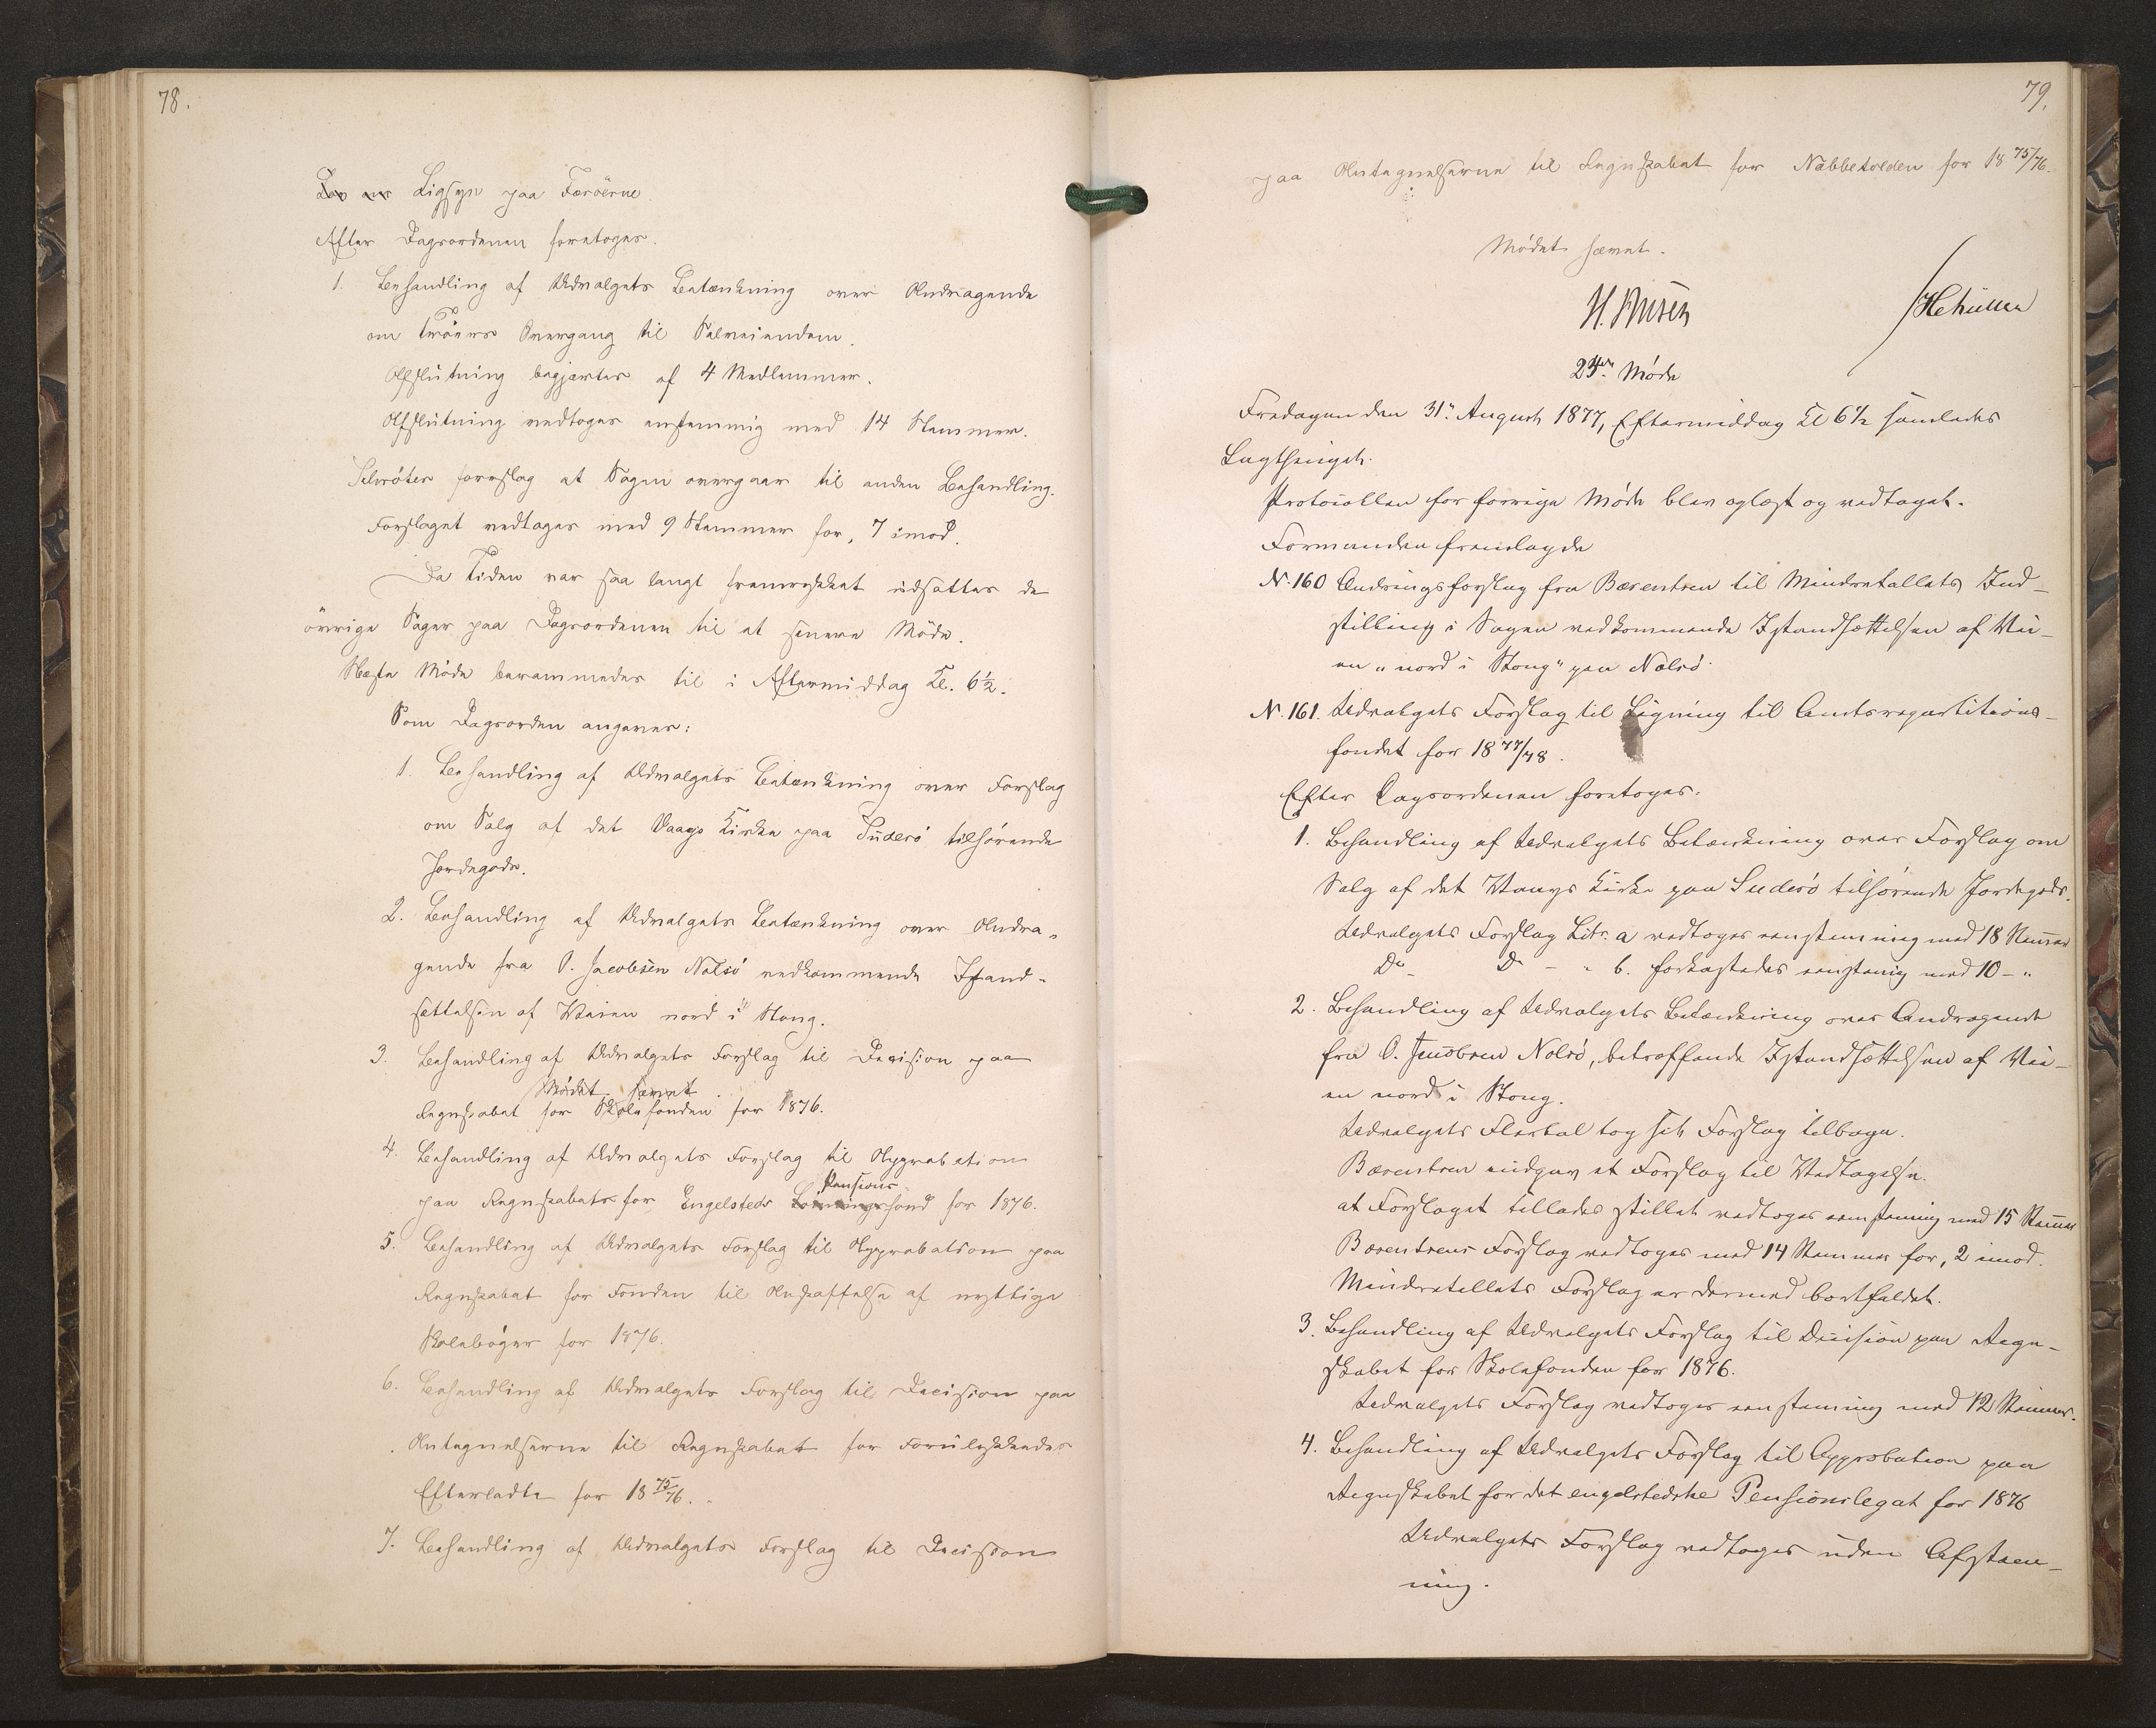 78.
Lov om Ligsyn paa Færöerne.
Efter Dagsordenen foretoges.
1. Behandling af Udvalgets Betænkning over Andragende
om Tröers Overgang til Selveiendom.
Afslutning begjærtes af 4 Medlemmer.
Afslutning vedtoges enstemmig med 14 Stemmer.
Schröter foreslog at Sagen overgaar til anden Behandling.
Forslaget vedtoges med 9 Stemmer for, 7 imod.
Da Tiden var saa langt fremrykket udsattes de
övrige Sager paa Dagsordenen til et senere Möde.
Næste Möde berammedes til i Eftermiddag Kl. 6½.
Som Dagsorden angaves:
1. Behandling af Udvalgets Betænkning over Forslag
om Salg af det Vaags Kirke paa Suderö tilhörende
Jordegods.
2. Behandling af Udvalgets Betænkning over Andra-
gende fra O. Jacobsen Nolsö vedkommende Istand-
sættelsen af Veien nord i Stong.
3. Behandling af Udvalgets Forslag til Decision paa
Mödet hævet
Regnskabet for Skolefonden for 1876.
4. Behandling af Udvalgets Forslag til Approbation
Pensions
paa Regnskabet for Engelsteds fond for 1876.
5. Behandling af Udvalgets Forslag til Approbation paa
Regnskabet for Fonden til Anskaffelse af nyttige
Skoleböger for 1876.
6. Behandling af Udvalgets Forslag til Decision paa
Antegnelserne til Regnskabet for Forulykkedes
Efterladte for 18 75/76.
7. Behandling af Udvalgets Forslag til Decision
79.
paa Antegnelserne til Regnskabet for Næbbetolden for 18 75/76.
Mödet hævet.
24de Möde
Fredagen den 31te August 1877, Eftermiddag Kl 6½ samledes
Lagthinget.
Protocollen for forrige Möde blev oplæst og vedtaget.
Formanden fremlagde
N. 160 Ændringsforslag fra Bærentsen til Mindretallets Ind-
stilling i Sagen vedkommende Istandsættelsen af Vei-
en "nord i Stong" paa Nolsö.
N. 161. Udvalgets Forslag til Ligning til Amtsrepartitions-
fondet for 18 77/78.
Efter Dagsordenen foretoges:
1. Behandling af Udvalgets Betænkning over Forslag om
Salg af det Vaags Kirke paa Suderö tilhörende Jordegods.
Udvalgets Forslag Litr. a vedtoges eenstemmig med 18 Stemmer
Do - Do - " b. forkastedes eenstemig med 10 - "
2. Behandling af Udvalgets Betænkning over Andragende
fra O. Jacobsen Nolsö, betræffende Istandsættelsen af Vei-
en nord i Stong.
Udvalgets Flertal tog sit Forslag tilbage.
Bærentsen indgav et Forslag til Vedtagelse.
at Forslaget tillades stillet vedtoges eenstemmig med 15 Stemmer
Bærentsens Forslag vedtoges med 14 Stemmer for, 2 imod.
Mindretallets Forslag er dermed bortfaldet.
3. Behandling af Udvalgets Forslag til Decision paa Regn-
skabet for Skolefonden for 1876.
Udvalgets Forslag vedtoges eenstemmig med 12 Stemmer.
4. Behandling af Udvalgets Forslag til Approbation paa
Regnskabet for det engelstedske Pensionslegat for 1876
Udvalgets Forslag vedtoges uden Afstem-
ning.